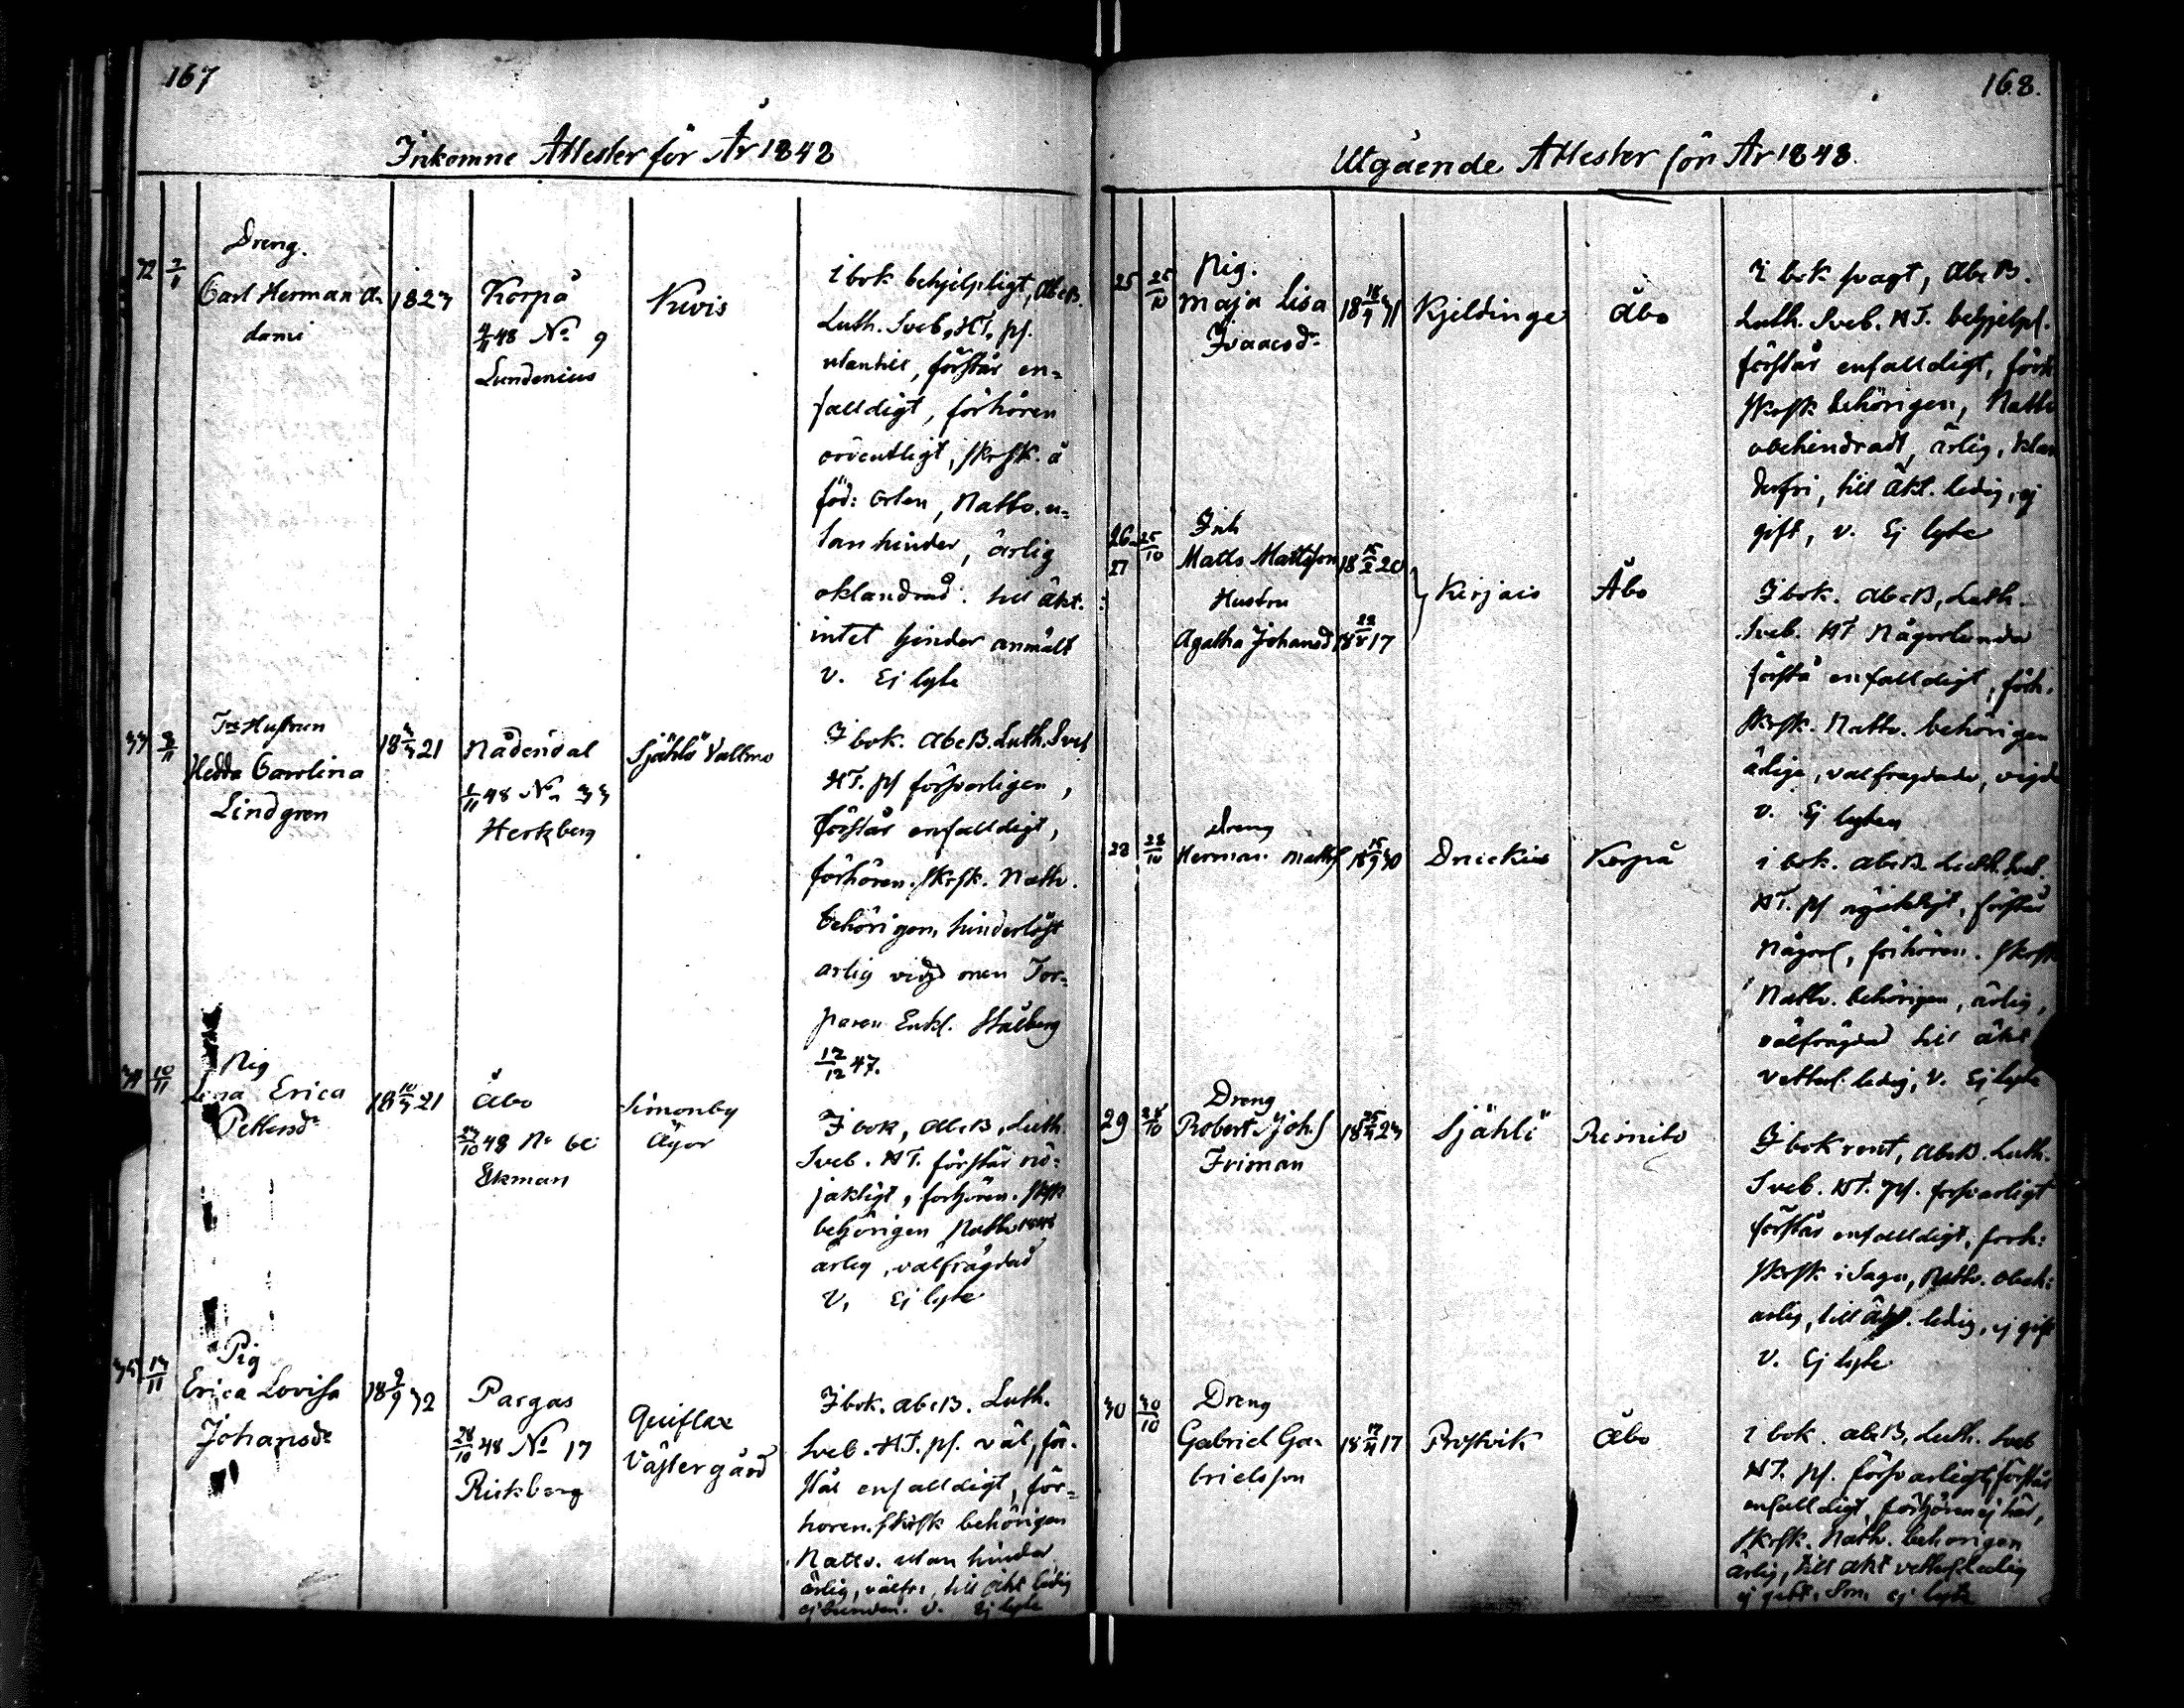 167
Inkomne Attester för År 1848
Dreng.
32 7/11 Carl Herman A-
dami
1823
Korpå
4/11 48 No 9
Lundenius
Kivis
i bok behjelpligt, Abc B.
Luth. Sveb, HT, ps.
utantill, förstår en=
falldigt, förhören
ordentligt, skrsk. å
föd: orten, Nattv. u=
tan hinder, ärlig
oklandrad. till äkt.
intet hinder anmält
V. Ej lyte
33
Hustrun
Hedda Carolina
Lindgren
18 3/3 21
Nådendal
1/11 48 No 33
Herkberg
Sjählö Vallmo
I bok. Abc B. Luth. Sveb
HT. ps försvarligen,
förstår enfalldigt,
förhören. skrsk. Nattv.
behörigen, hinderlöst
arlig vigd
paren Enkl. Stålberg
12/12 47.
34 10/11
Pig
Lena Erica
Pettersdr
18 10/3 21
Åbo
48 No
Ekman
Simonby
Ägor
I bok, Abc B, Luth.
Sveb. HT. förstår nö=
jaktigt, forhören. skrsk
behörigen Nattv 1848
ärlig, välfrägdad
V, Ej lyte
35 13/11
Pig
Erica Lovisa
Johansdr
18 9/9 32
Pargas
28/10 48 No 17
Rickberg
Qviflax
Västergård
I bok. abc B. Luth.
Sveb. HT. ps. väl, för-
står enfalldigt, för=
hören. skrsk behörigen
Nattv. utan hinder
ärlig, välfr:, till äkt ledig
ej bunden. V. Ej lyte
168.
Utgående Attester för År 1848.
25 25/10
Pig.
Maja Lisa
Isaacsdr
18 18/9 31
Kjeldinge
Åbo
I bok svagt, Abc B.
Luth. Sveb. HT. behjelpl.
förstår enfalldigt, förh
skrsk behörigen, Nattv
obehindradt, ärlig, klan
derfri, till äkt. ledig, ej
gift, V. Ej lyte
26 25/10
27
Inh
Matts Mattsson 18 15/2 20
Hustru
Agatha Johansd 18 22/8 17
Kirjais
Åbo
I bok. Abc B, Luth.
Sveb. HT Någorlunda
förstå enfalldigt, förh.
skrsk. Nattv. behörigen
ärlige, välfrägdade, vigde
V. Ej lyten
28 28/10
Dreng
Herman Matts
18 15/9 30
Korpå
i bok. abc B. Luth. Sveb.
HT. ps nöjaktigt, förstår
Någorl, förhören. skrsk
Nattv. behörigen, ärlig,
välfrägdad till äkt
vetterl. ledig, V. Ej lyte
29 28/10
Dreng
Robert Joh.s
Friman
18 25/4 23
Sjählö
Rimito
I bok rent, Abc B. Luth.
Sveb. HT. ps. försvarligt
förstår enfalldigt, forh:
skrsk i Sagu, Nattv. obeh:
ärlig, till äkt. ledig, ej gift
V. Ej lyte
30 30/10
Dreng
Gabriel Ga-
brielsson
17
Prostvik
Åbo
i bok. abc B, Luth. Sveb
HT. ps. försvarligt, förstår
enfalldigt, förhören ej här,
skrsk. Nattv. behörigen
ärlig, till äkt vetterl. ledig
ej gift. ej lyte